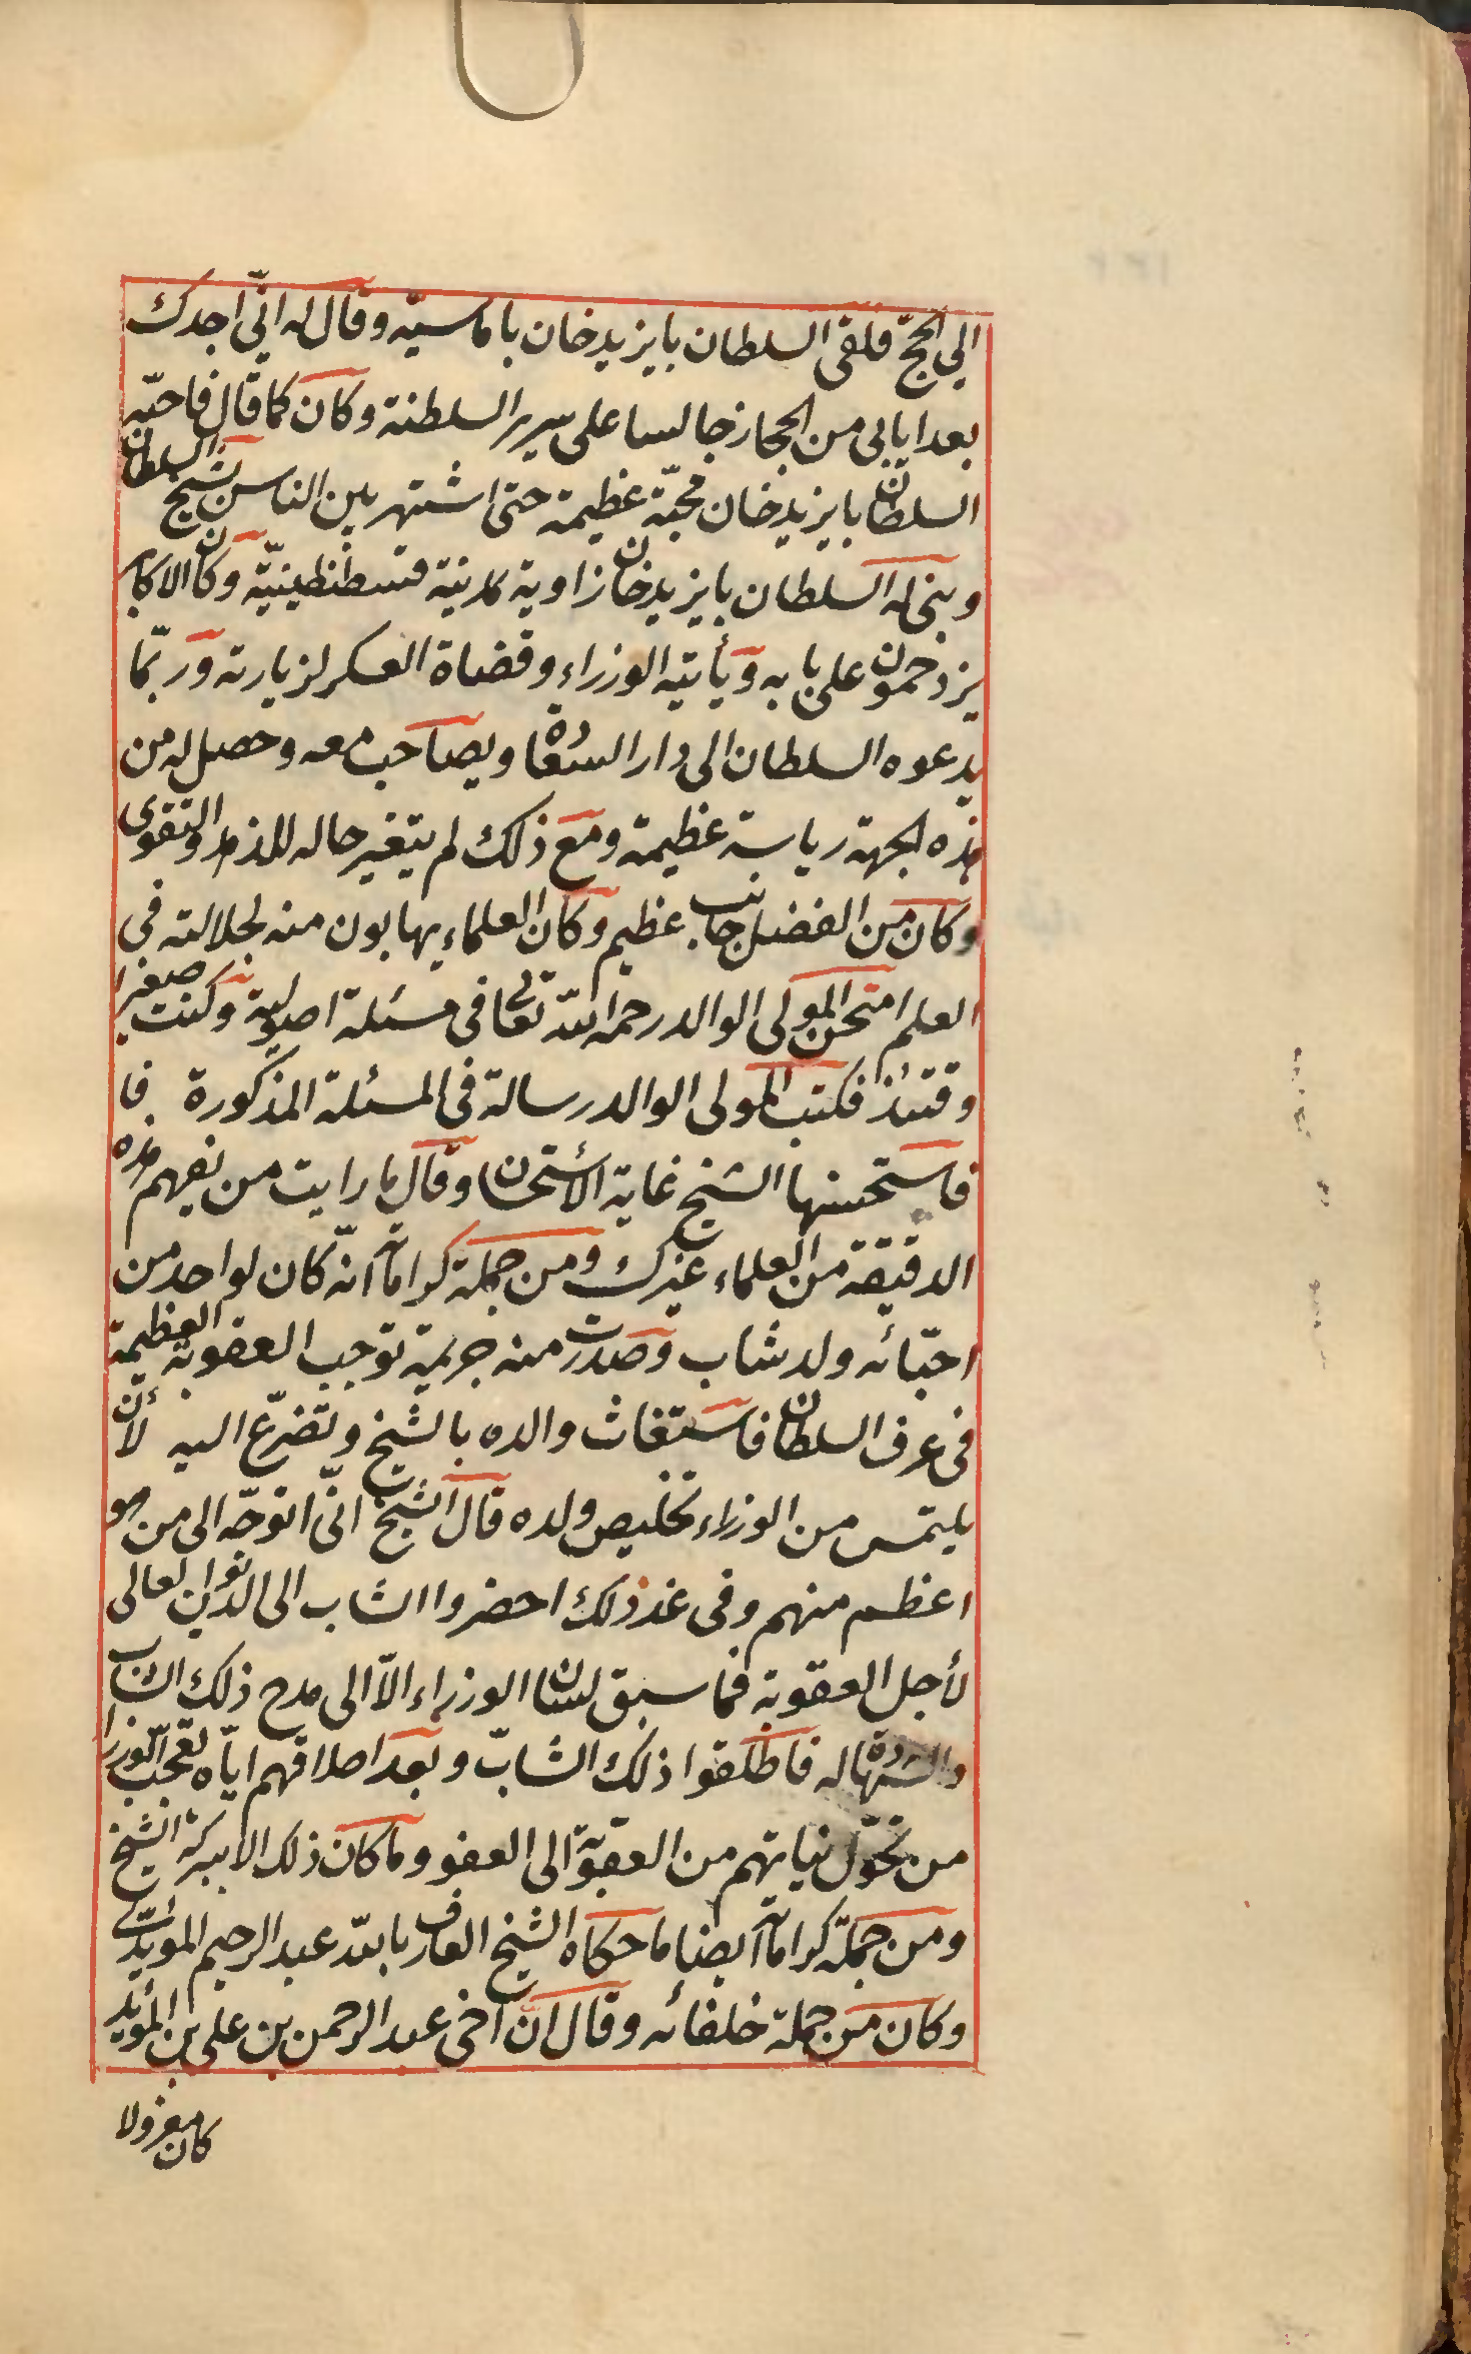 الى الحجّ فلقى السلطان بايزيد خان باماسيّه وقال له انّي اجدك
بعد ايابى من الحجاز جالسا على سرير السلطنة وكان كما قال فاحبّه
السلطان بايزيد خان محبّة عظيمة حتى اشتهر بين الناس بشيخ السلطان
وبنى له السلطان بايزيد خان زاوية بمدينة قسطنطينيّة وكان الاكابر
يزدحمون على بابه ويأتيه الوزراء وقضاة العسكر لزيارته وربّما
يدعوه السلطان الى دار السعادة ويصاحب معه وحصل له من
هذه الجهة رياسة عظيمة ومع ذلك لم يتغير حاله والتقوى
وكان من الفضل جانب عظيم وكان العلماء يهابون منه لجلالته فى
العلم امتحن المولى الوالد رحمه الله تعالى فى مسئلة اصولية وكنت صغيرا
وقتئذ فكتب المولى الوالد رسالة فى المسئلة المذكورة فا
فاستحسنها الشيخ غاية الأستحسان وقال ما رايت من يفهم هذه
الدقيقة من العلماء غيرك ومن جملة كراماته انّه كان لواحد من
احبّائه ولد شاب وصدرت منه جريمة توجب العقوبة العظيمة
فى عرف السلطان فاستغاث والده بالشيخ وتضرّع اليه لأن
يلتمس من الوزراء تخليص ولده قال الشيخ انّى اتوجّه الى من هو
اعظم منهم وفى غد ذلك احضروا الشاب الى الديوان العالى
لأجل العقوبة فما سبق لسان الوزراء الاّ الى مدح ذلك الشاب
والشهادة له فاطلقوا ذلك الشابّ وبعد اطلاقهم ايّاه تعجّب الوزرا
من تحوّل نياتهم من العقوبة الى العفو وما كان ذلك الا ببركة الشيخ
ومن جملة كراماته ايضا ما حكاه الشيخ العارف بالله عبد الرحيم المؤيّدى
وكان من جملة خلفائه وقال انّ اخى عبد الرحمن بن على بن المؤيد
كان معزولا